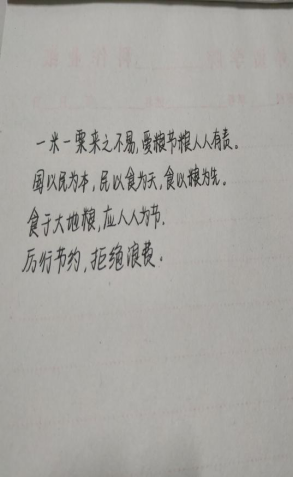 一米一粟来之不易,爱粮节粮人人有责。
国以民为本,民以食为天,食以粮为先。
食于大地粮,应人人为节.
厉行节约,拒绝浪费.